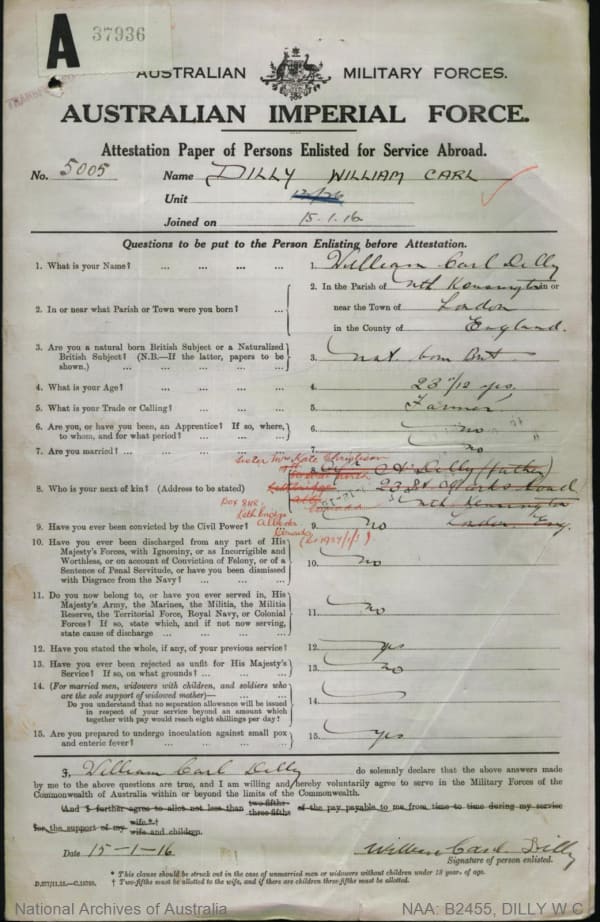 A 37936
AUSTRALIAN MILITARY FORCES.
AUSTRALIAN IMPERIAL FORCE.
Attestation Paper of Persons Enlisted for Service Abroad.
No. 5005 Name DILLY WILLIAM CARL
Unit
Joined on 15.1.16
Questions to be put to the Person Enlisting before Attestation.
1. What is your Name? ... ... ... ... 1. William Carl Dilly
2. In or near what Parish or Town were you born? ... 2. In the Parish of Nth Kensington in or
near the Town of London
in the County of England.
3. Are you a natural born British Subject or a Naturalized
British Subject? (N.B.—If the latter, papers to be
shown.) ... ... ... ... ... 3. nat. born Brit
4. What is your Age? ... ... ... ... 4. 23 11/12 yrs,
5. What is your Trade or Calling? ... ... ... 5. Farmer
6. Are you, or have you been, an Apprentice? If so, where,
to whom, and for what period? ... ... ... 6. no
7. Are you married? ... ... ... ... 7. no
Sister Mrs Kate Christeson
8. Who is your next of kin? (Address to be stated) 8. A Dilly (father)
23 St Marks Road
Nth Kensington
London Eng.
Box 848
Lethbridge
Alberta
Canada
9. Have you ever been convicted by the Civil Power? 9. No
10. Have you ever been discharged from any part of His
Majesty's Forces, with Ignominy, or as Incorrigible and
Worthless, or on account of Conviction of Felony, or of a
Sentence of Penal Servitude, or have you been dismissed
with Disgrace from the Navy? ... ... ... 10. no
11. Do you now belong to, or have you ever served in, His
Majesty's Army, the Marines, the Militia, the Militia
Reserve, the Territorial Force, Royal Navy, or Colonial
Forces? If so, state which, and if not now serving,
state cause of discharge ... ... ... ... 11. no
12. Have you stated the whole, if any, of your previous service? 12. yes
13. Have you ever been rejected as unfit for His Majesty's
Service? If so, on what grounds? ... ... ... 13. no
14. (For married men, widowers with children, and soldiers who
are the sole support of widowed mother)—
Do you understand that no separation allowance will be issued
in respect of your service beyond an amount which
together with pay would reach eight shillings per day? 14.
15. Are you prepared to undergo inoculation against small pox
and enteric fever? ... ... ... ... 15. yes
I, William Carl Dilly do solemnly declare that the above answers made
by me to the above questions are true, and I am willing and hereby voluntarily agree to serve in the Military Forces of the
Commonwealth of Australia within or beyond the limits of the Commonwealth.
*And I further agree to allot not less than two-fifths three-fifths of the pay payable to me from time to time during my service
for the support of my wife*† wife and children.
Date 15-1-16 William Carl Dilly
Signature of person enlisted.
* This clause should be struck out in the case of unmarried men or widowers without children under 18 years of age.
† Two-fifths must be allotted to the wife, and if there are children three-fifths must be allotted.
National Archives of Australia NAA: B2455, DILLY W C